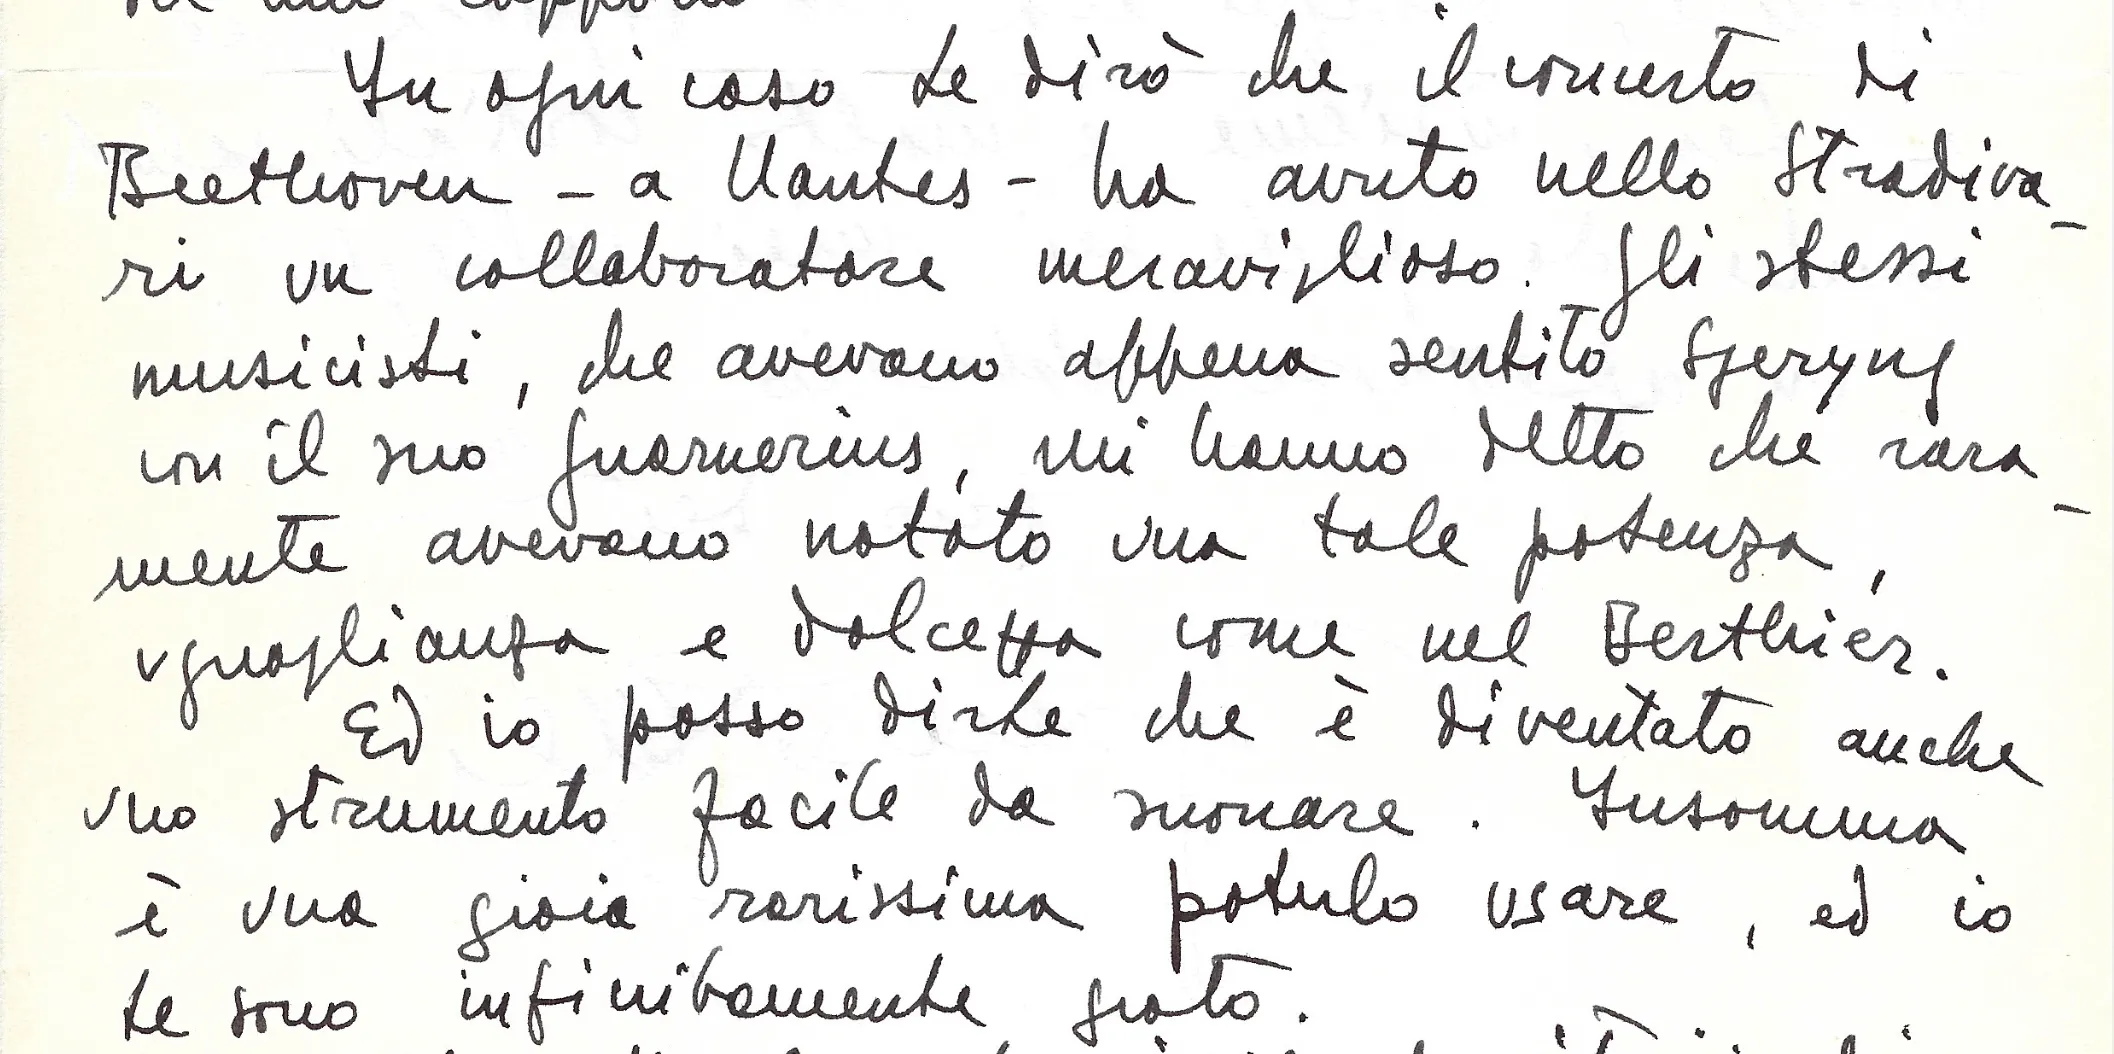 In ogni caso te dirò che il concerto di
Beethoven - a Nantes - ha avuto nello Stradiva-
ri un collaboratore meraviglioso. Gli stessi
musicisti, che avevano appena sentito Szeryng
con il suo Guarnerius, mi hanno detto che rara-
mente avevano notato una tale potenza,
uguaglianza e dolcezza come nel Berthier.
Ed io posso dirte che è diventato anche
uno strumento facile da suonare. Insomma
è una gioia rarissima poterlo usare, ed io
te sono infinitamente grato.